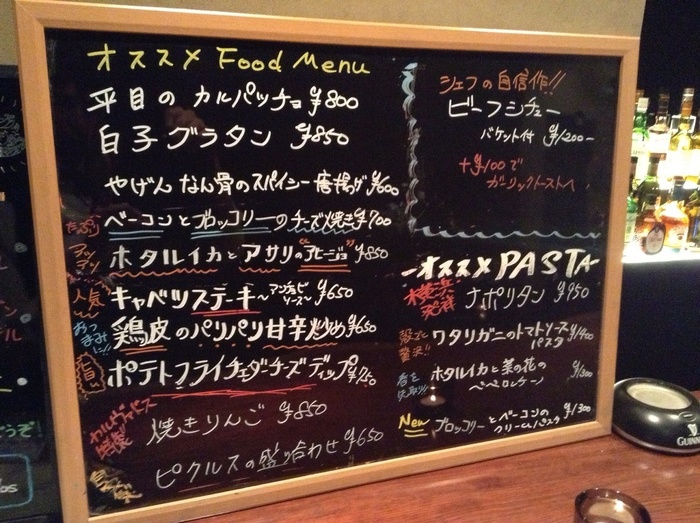 オススメ Food Menu
平目の カルパッチョ ¥800
白子グラタン ¥850
やげん なん骨のスパイシー唐揚げ ¥600
ベーコンとブロッコリーのチーズ焼き ¥700
たっぷり
ホタルイカとアサリの"アヒージョ" ¥850
アツアツ
人気
キャベツステーキ〜アンチョビソース〜 ¥650
おつまみに!!
鶏皮のパリパリ甘辛炒め ¥650
ポテトフライチェダーチーズディップ
カルヴァドス
焼きりんご ¥850
自家製
ピクルスの盛り合わせ ¥650
シェフの自信作!!
ビーフシチュー
バケット付 ¥1,200-
+¥100で
ガーリックトーストへ
-オススメ PASTA-
横浜
発祥
ナポリタン ¥950
贅沢!!
ワタリガニのトマトソース
パスタ ¥1,400
春を
先取り!!
ホタルイカと菜の花の
ペペロンチーノ ¥1,300
New
ブロッコリーとベーコンの
クリームパスタ ¥1,300
GUINN